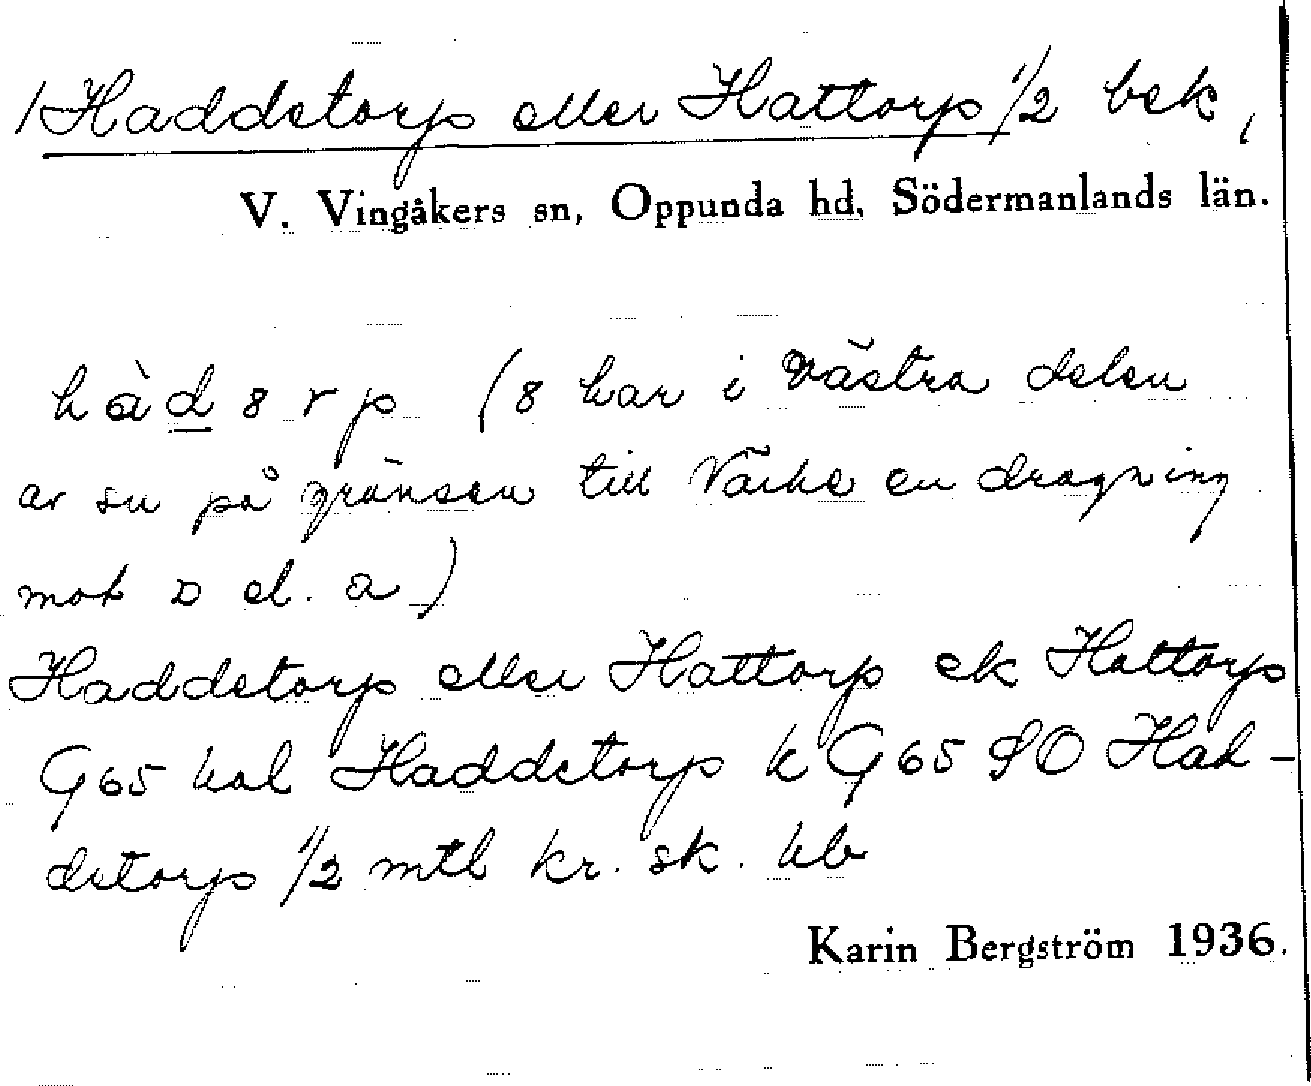 /Haddetorp eller Hattorp 1/2 bek,
V. Vingåkers sn, Oppunda hd, Södermanlands län.
hàd8rp (8 har i västra delen
av sn på gränsen till Närke en dragning
mot ɒ el. a)
Haddetorp eller Hattorp ek Hattorp
G65 kal Haddetorp k G65 SO Had-
detorp 1/2 mtl kr. sk. hb
Karin Bergström 1936.